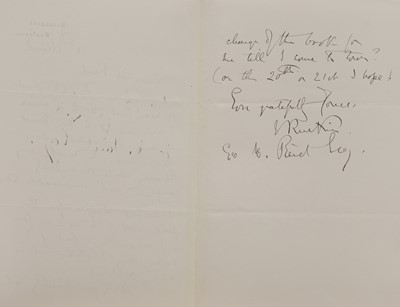 charge of the book for
me till I come to town?
(on the 20th or 21st I hope)
Ever gratefully Yours.
J Ruskin
Geo W. Reid Esq.